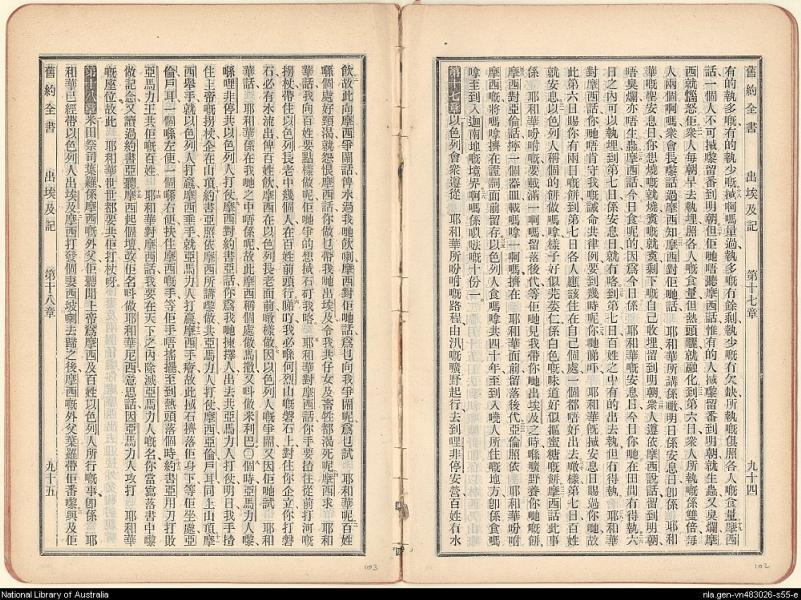 舊約全書 出埃及記 第十七章 九十四
有的執多嘅有的執少嘅㨢啊嗎量過執多嘅冇餘剩執少嘅冇欠缺所執嘅俱照各人嘅食量摩西
話一個人不可㨢嚟留番到明朝但佢哋唔聽摩西話惟有的人㨢嚟留番到明朝就生蟲又臭爛摩
西就惱怒佢衆人每朝早去執埋照各人嘅食量但熱頭曬就融化到第六日衆人所執嘅係雙倍每
人兩個啊嗎衆會長嚟話過摩西知摩西對佢哋話耶和華所講係噉明日係安息日卽係耶和
華嘅聖安息日你想燒嘅就燒賁嘅就賁剩下嘅自己收埋留到明朝衆人遵依摩西說話留到明朝
唔臭爛亦唔生蟲摩西話今日食呢的因爲今日係耶和華嘅安息日今日你哋在田間冇得執六
日之內可以執埋到第七日係安息日就冇咯到第七日百姓之中有的出去執但冇得執耶和華
對摩西話你哋唔肯守我嘅誡命共律例要到幾時呢你哋睇吓耶和華旣㨢安息日賜過你哋故
此第六日賜你有兩日嘅餅到第七日各人應該住在自己個處一個都唔好出去噉樣第七日百姓
就安息以色列人稱個的餅做嗎嗱樣子好似芫荽仁係白色嘅味道好似摳蜜糖嘅餅摩西話此事
係耶和華吩咐嘅要㨢滿一啊嗎留落後代等佢哋見我帶你哋出埃及之時喺曠野養你哋嘅餅
摩西對亞倫話㨢一個器皿㨢嗎嗱一啊嗎擠在耶和華面前留落後代亞倫照依耶和華吩咐
摩西嘅㨢嗎嗱擠在證詞面前留存以色列人食嗎嗱共四十年至到入嘵人所住嘅地方卽係食嗎
嗱至到入迦南地嘅境界啊嗎係㕶𠵇嘅十份一
第十七章以色列會衆遵從耶和華所吩咐嘅路程由汛嘅曠野起行去到哩非停安營百姓冇水
102
飲故此向摩西爭鬧話俾水過我哋飲喇摩西對佢哋話爲乜向我爭鬧呢爲乜試耶和華呢百姓
喺個處好頸渴就怨恨摩西話你做乜帶我哋出埃及令我共仔女及畜牲都渴死呢摩西求耶和
華話我向百姓要點樣做呢佢哋爭的想㨢石矴我咯耶和華對摩西話你手要揸住從前打河嘅
柺杖帶住以色列長老中幾個人在百姓前頭行睇吓我必喺何烈山嘅磐石上對住你企立你打磐
石必有水流出俾百姓飲摩西在以色列長老面前噉樣做因以色列人嘅爭鬧又因佢哋試耶和
華話耶和華係在我哋之中唔係呢故此摩西稱個處做馬撒又叫做米利巴〇個時亞馬力人嚟
喺哩非停共以色列人打仗摩西對約書亞話你爲我哋揀擇人出去共亞馬力人打仗明日我手揸
住上帝嘅柺杖企在山頂約書亞照依摩西所講嚟做共亞馬力人打仗摩西亞倫戶耳同上山頂摩
西舉手就以色列人打贏摩西垂手就亞馬力人打贏摩西手瘏故此㨢石擠落佢身下等佢坐處亞
倫戶耳一個喺左便一個喺右便扶住摩西嘅手等佢手唔搖擺至到熱頭落個時約書亞用刀打敗
亞馬力王共佢嘅百姓耶和華對摩西話我要在天下之內除滅亞馬力人嘅名你當寫落書中嚟
做記念又讀過約書亞聽摩西起個壇改佢名叫做耶和華尼西意思話因亞馬力人攻打耶和華
嘅座位故此耶和華世世都要共佢打仗呀
第十八章米田祭司葉羅係摩西嘅外父佢聽聞上帝爲摩西及百姓以色列人所行嘅事卽係耶
和華已經帶以色列人出埃及摩西打發個妻西坡喇去歸之後摩西嘅外父葉羅帶佢番嚟興及佢
舊約全書 出埃及記 第十八章 九十五
103
National Library of Australia
nla.gen-vn483026-s55-e